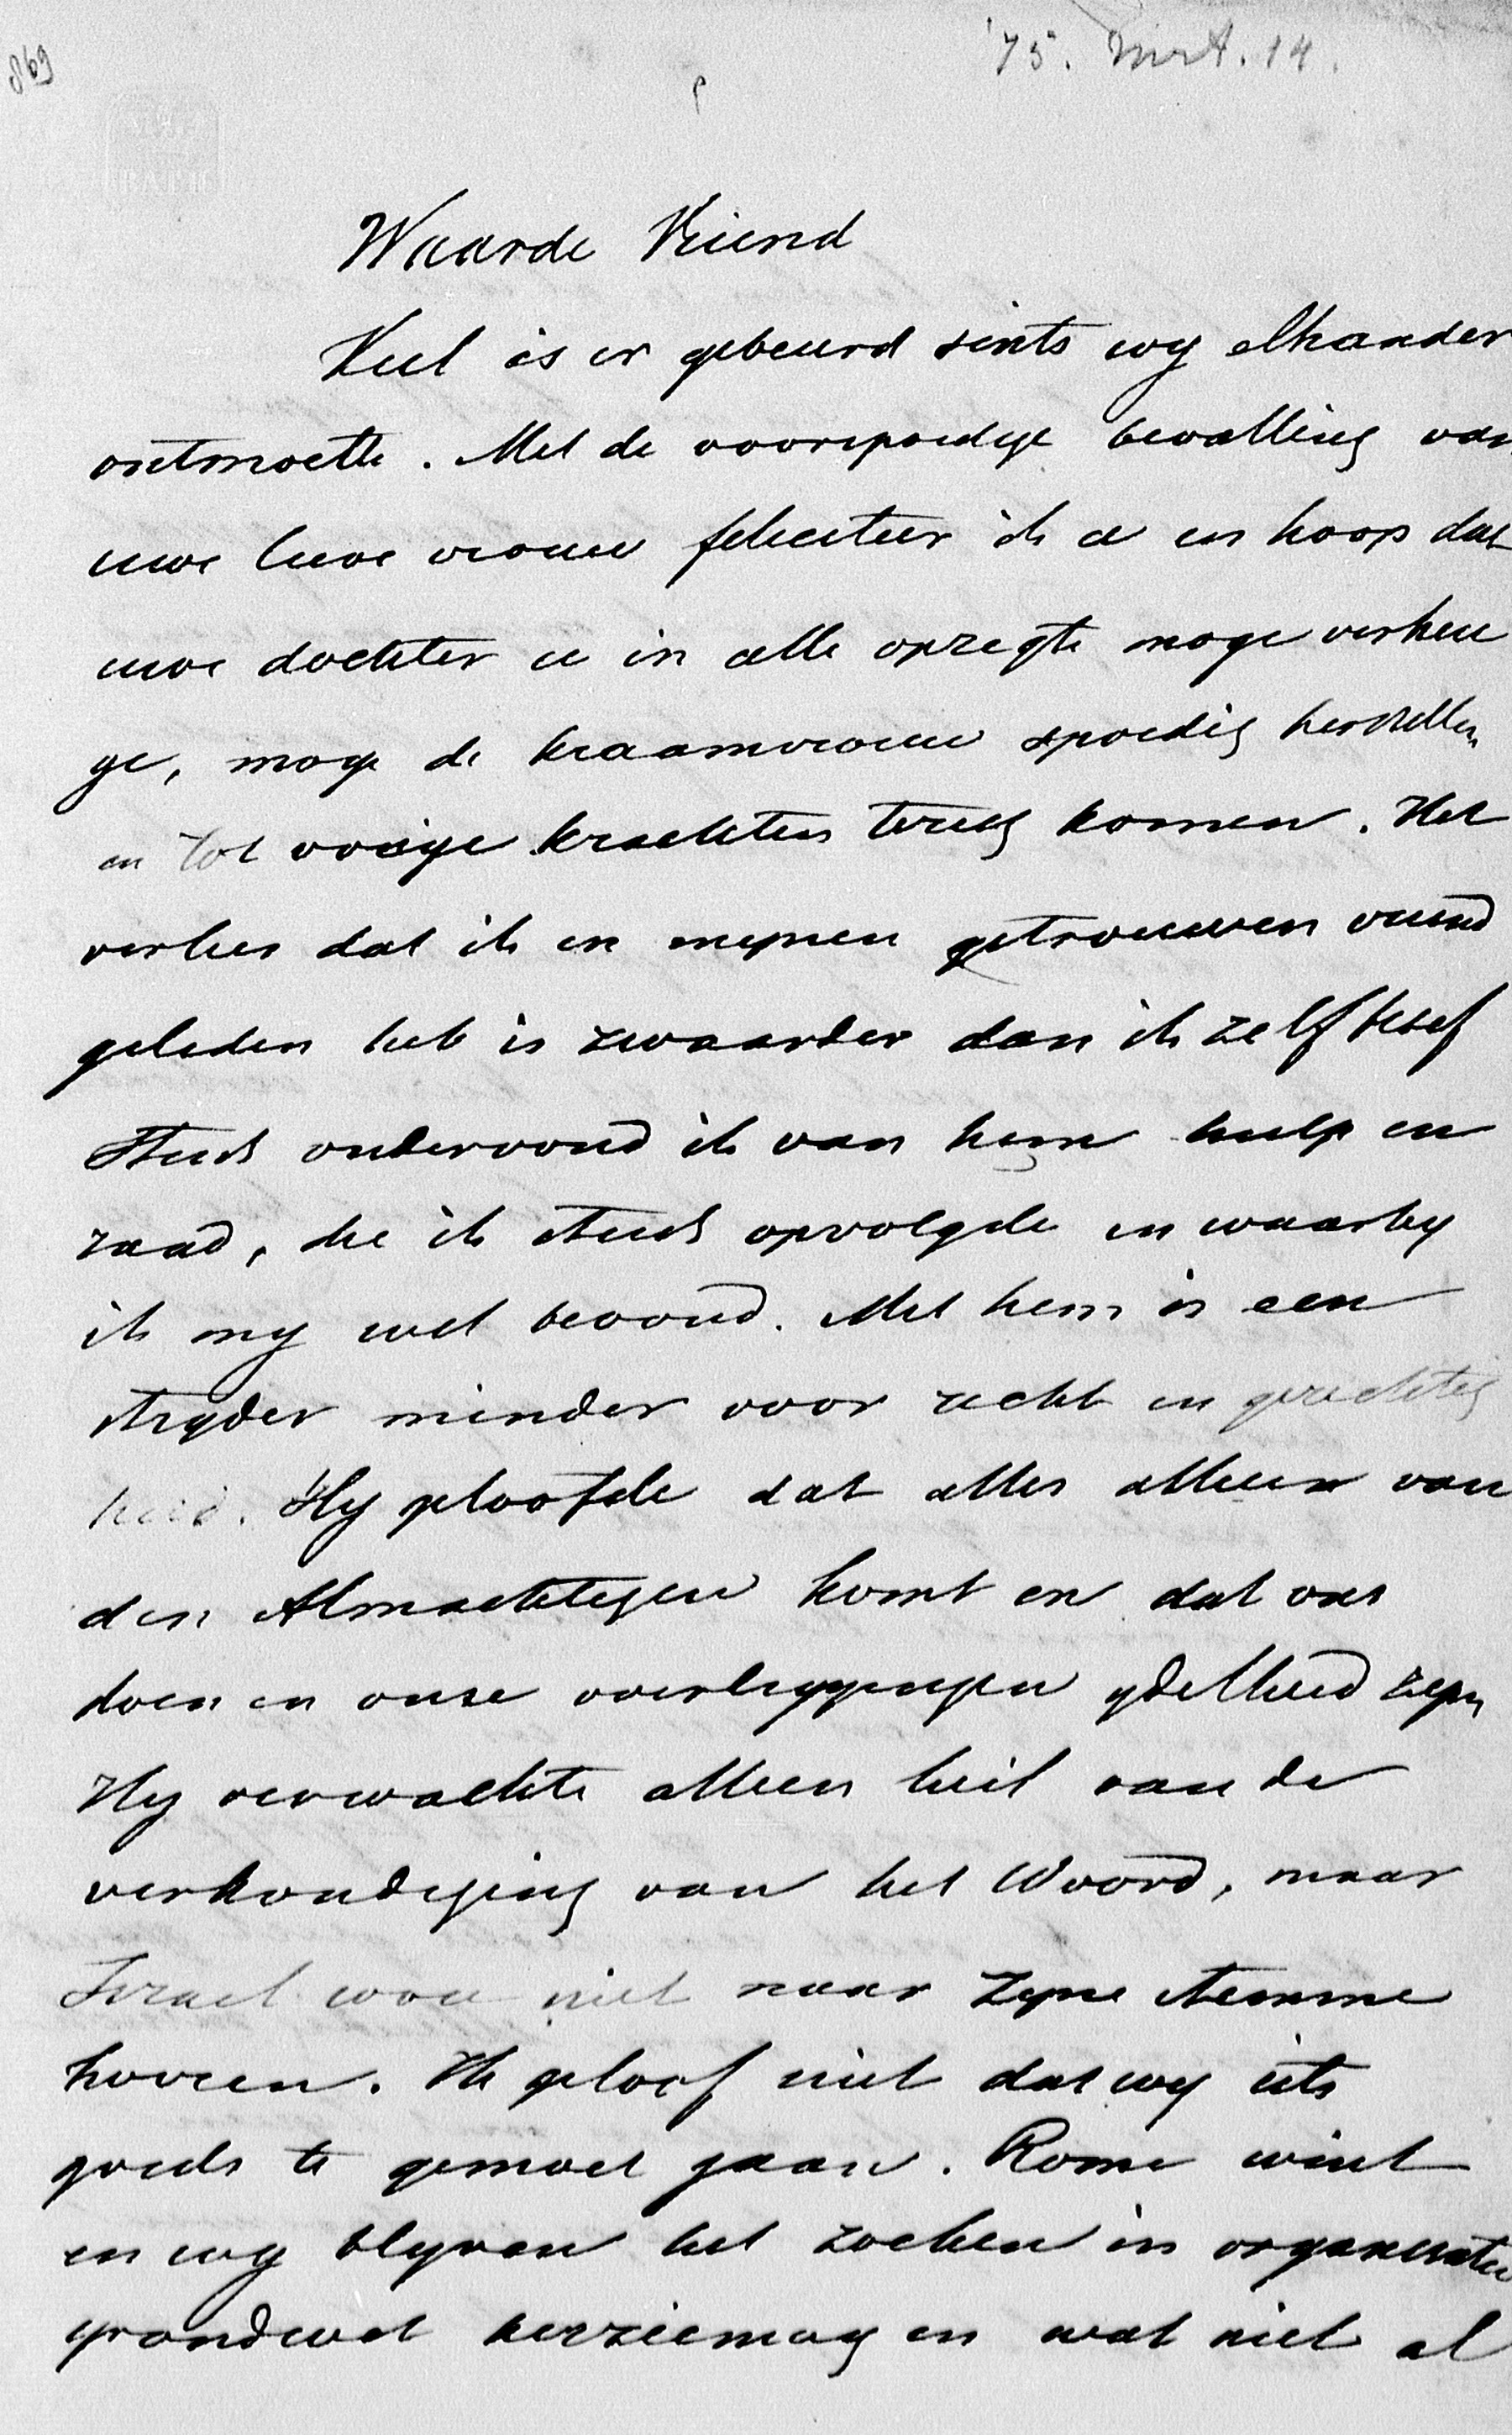 869
'75. Mrt. 14.
Waarde Vriend
Veel is er gebeurd sints wy elkander
ontmoette. Met de voorspoedige bevalling van
uwe lieve vrouw feliciteer ik u en hoop dat
uwe dochter u in alle opzegte moge verheu
ge, moge de kraamvrouw spoedig herstellen
en tot vorige krachten terug komen. Het
verlies dat ik in mynen getrouwen vriend
geleden heb is zwaarder dan ik zelf besef
Steeds ondervond ik van hem hulp en
raad, die ik steeds opvolgde en waarby
ik my wel bevond. Met hem is een
stryder minder voor recht en gerechtig
heid. Hy geloofde dat alles alleen van
den Almachtigen komt en dat ons
doen en onse overleggingen ydelheid zyn
Hy verwachte alleen heil van de
verkondiging van het Woord, maar
Israel wou niet naar zyne stemme
hooren. Ik geloof niet dat wy iets
goeds te gemoet gaan. Rome wint
en wy blyven het zoeken in organisatie
grondwet herziening en wat niet al